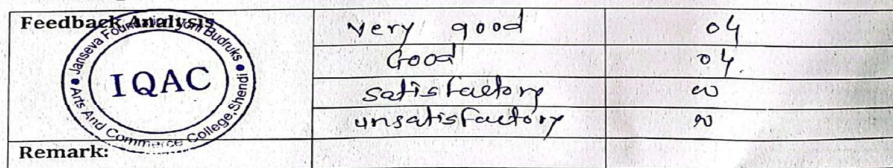 Feedback Analysis very good 04
Good 04.
Satisfactory 00
unsatisfactory 00
Janseva Foundation Loni Budruks
IQAC
Arts And Commerce College, Shendi
Remark: